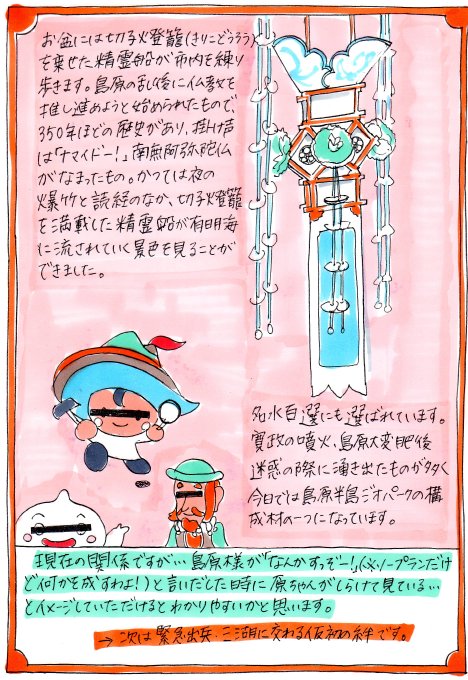 お盆には切子燈籠(きりこどうろう)
を乗せた精霊船が市内を練り
歩きます。島原の乱後に仏教を
推し進めようと始められたもので、
350年ほどの歴史があり、掛け声
は「ナマイドー!」南無阿弥陀仏
がなまったもの。かつては夜の
爆竹と読経のなか、切子燈籠
を満載した精霊船が有明海
に流されていく景色を見ることが
できました。
名水百選にも選ばれています。
寛政の噴火、島原大変肥後
迷惑の際に湧き出たものが多く
今日では島原半島ジオパークの構
成材の一つになっています。
現在の関係ですが…島原様が「なんかすっぞー!」(※ノープランだけ
ど何かを成すわよ!)と言いだした時に原ちゃんがしらけて見ている…
とイメージしていただけるとわかりやすいかと思います。
→次は緊急出兵、三湖に交わる仮初の絆です。